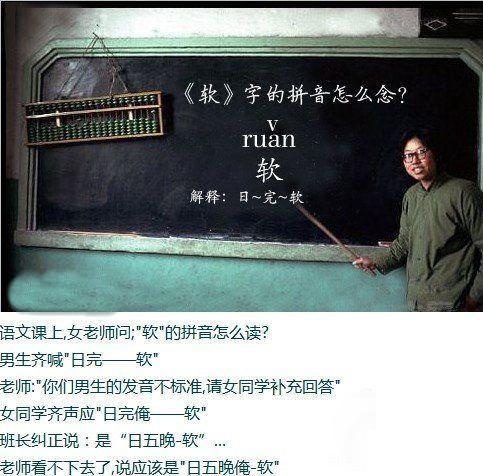 《软》字的拼音怎么念?
v
ruan
软
解释: 日~完~软
语文课上,女老师问;"软"的拼音怎么读?
男生齐喊"日完——软"
老师:"你们男生的发音不标准,请女同学补充回答"
女同学齐声应"日完俺——软"
班长纠正说：是“日五晚-软”...
老师看不下去了,说应该是"日五晚俺-软"